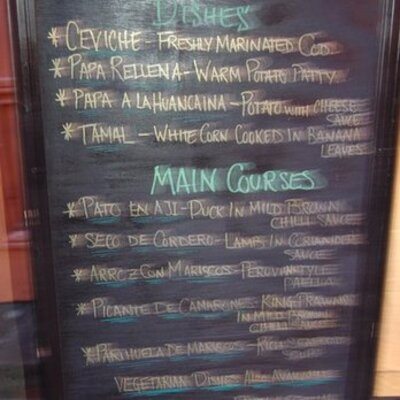 DISHES
* CEVICHE - FRESHLY MARINATED COD
* PAPA RELLENA - WARM POTATO PATTY
* PAPA A LA HUANCAINA - POTATO WITH CHEESE
SAUCE
* TAMAL - WHITE CORN COOKED IN BANANA
LEAVES
MAIN COURSES
* PATO EN AJI - DUCK IN MILD BROWN
CHILLI SAUCE
* SECO DE CORDERO - LAMB IN CORIANDER
SAUCE
* ARROZ CON MARISCOS - PERUVIAN STYLE
PAELLA
* PICANTE DE CAMARONES - KING PRAWNS
IN MILD
CHILLI SAUCE
* PARIHUELA DE MARISCOS - RICH SEAFOOD
SOUP
VEGETARIAN DISHES ALSO AVAILABLE